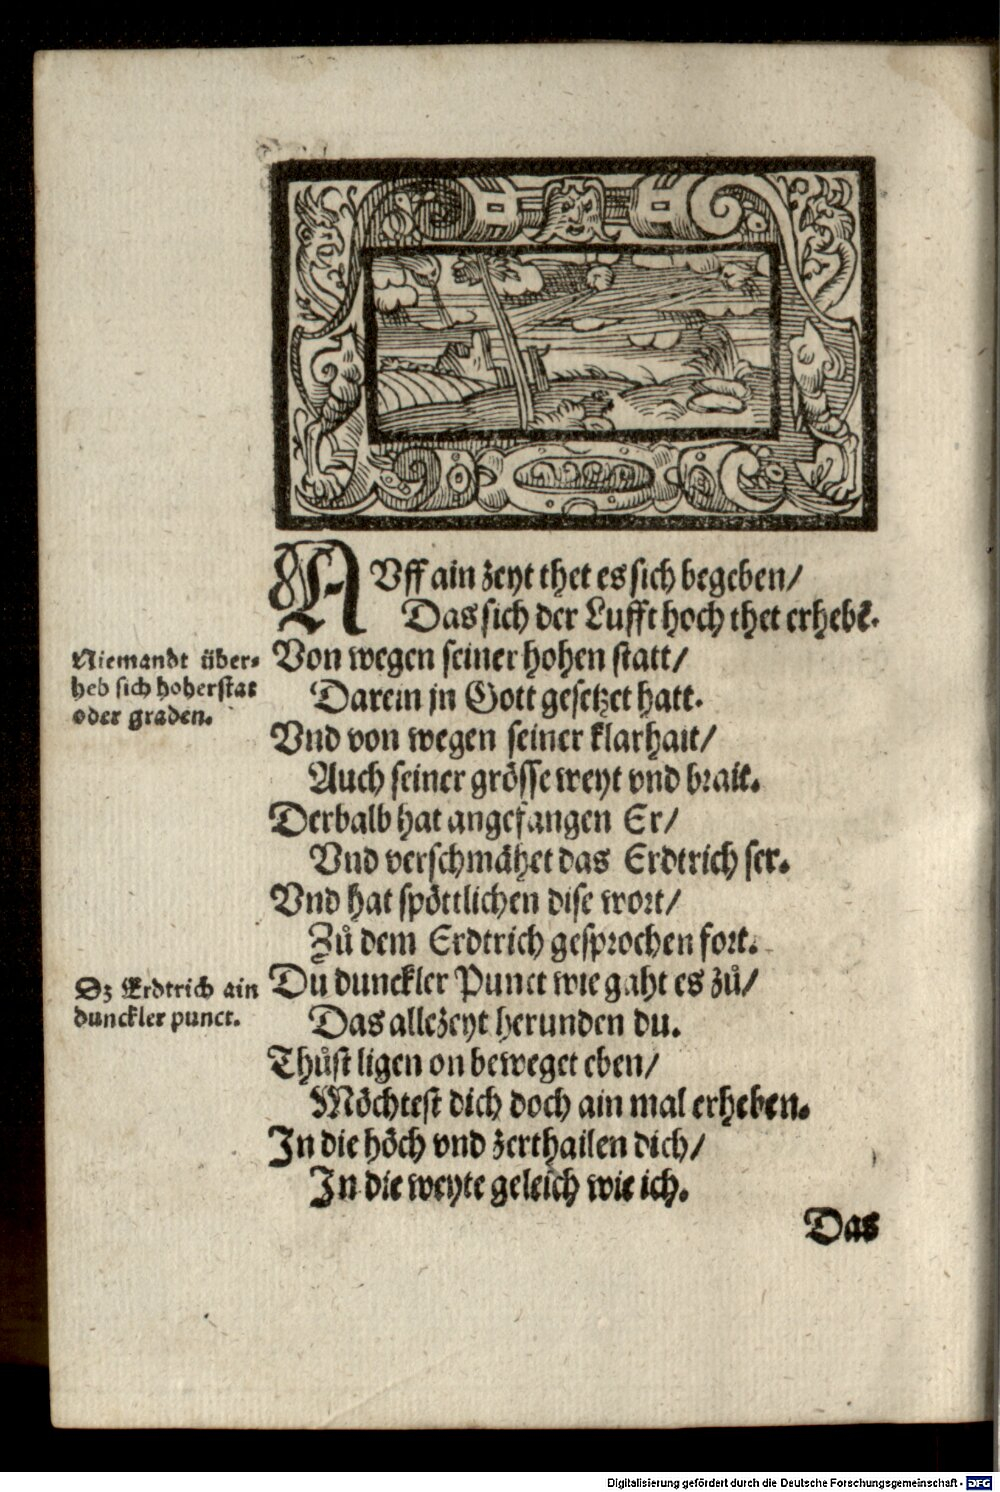 AVff ain zeyt thet es sich begeben/
Das sich der Lufft hoch thet erhebē.
Niemandt über-
heb sich hoher stat
oder graden.
Von wegen seiner hohen statt/
Darein jn Gott gesetzet hatt.
Vnd von wegen seiner klarhait/
Auch seiner grösse weyt vnd brait.
Derhalb hat angefangen Er/
Vnd verschmähet das Erdtrich ser.
Vnd hat spöttlichen dise wort/
Zů dem Erdtrich gesprochen fort.
Dz Erdtrich ain
dunckler punct.
Du dunckler Punct wie gaht es zů/
Das allezeyt herunden du.
Thůst ligen on beweget eben/
Möchtest dich doch ain mal erheben.
In die höch vnd zerthailen dich/
In die weyte geleich wie ich.
Das
Digitalisierung gefördert durch die Deutsche Forschungsgemeinschaft - DFG